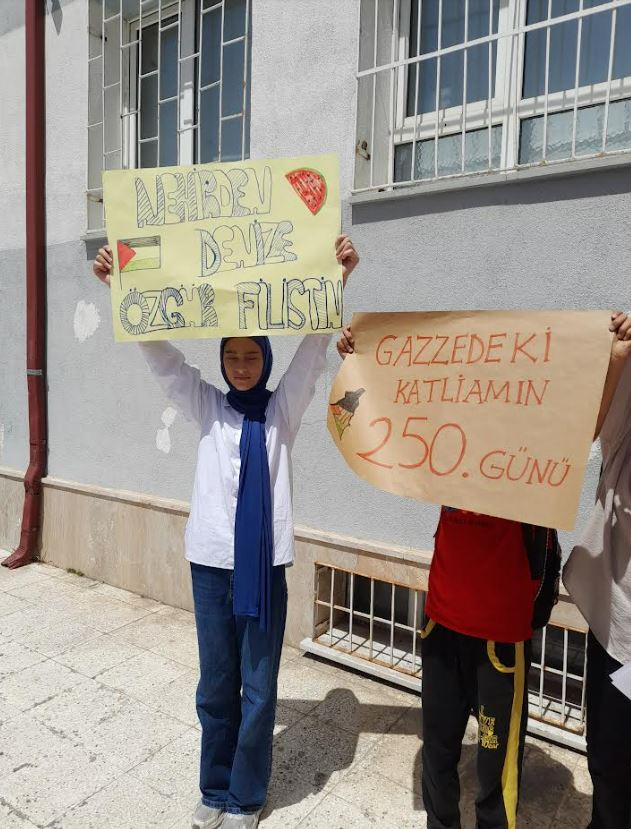 NEHİRDEN
DENİZE
ÖZGÜR FİLİSTİN
GAZZEDEKİ
KATLİAMIN
250. GÜNÜ